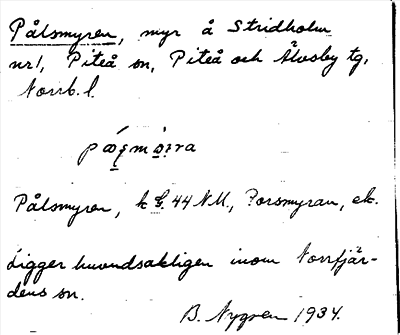 Pålsmyren, myr å Stridholm
nr 1, Piteå sn, Piteå och Älvsby tg,
Norrb. l.
Pålsmyren, k 44 NM., Porsmyran, ek.
Ligger huvudsakligen inom Norrfjär-
dens sn.
B. Nygren 1934.